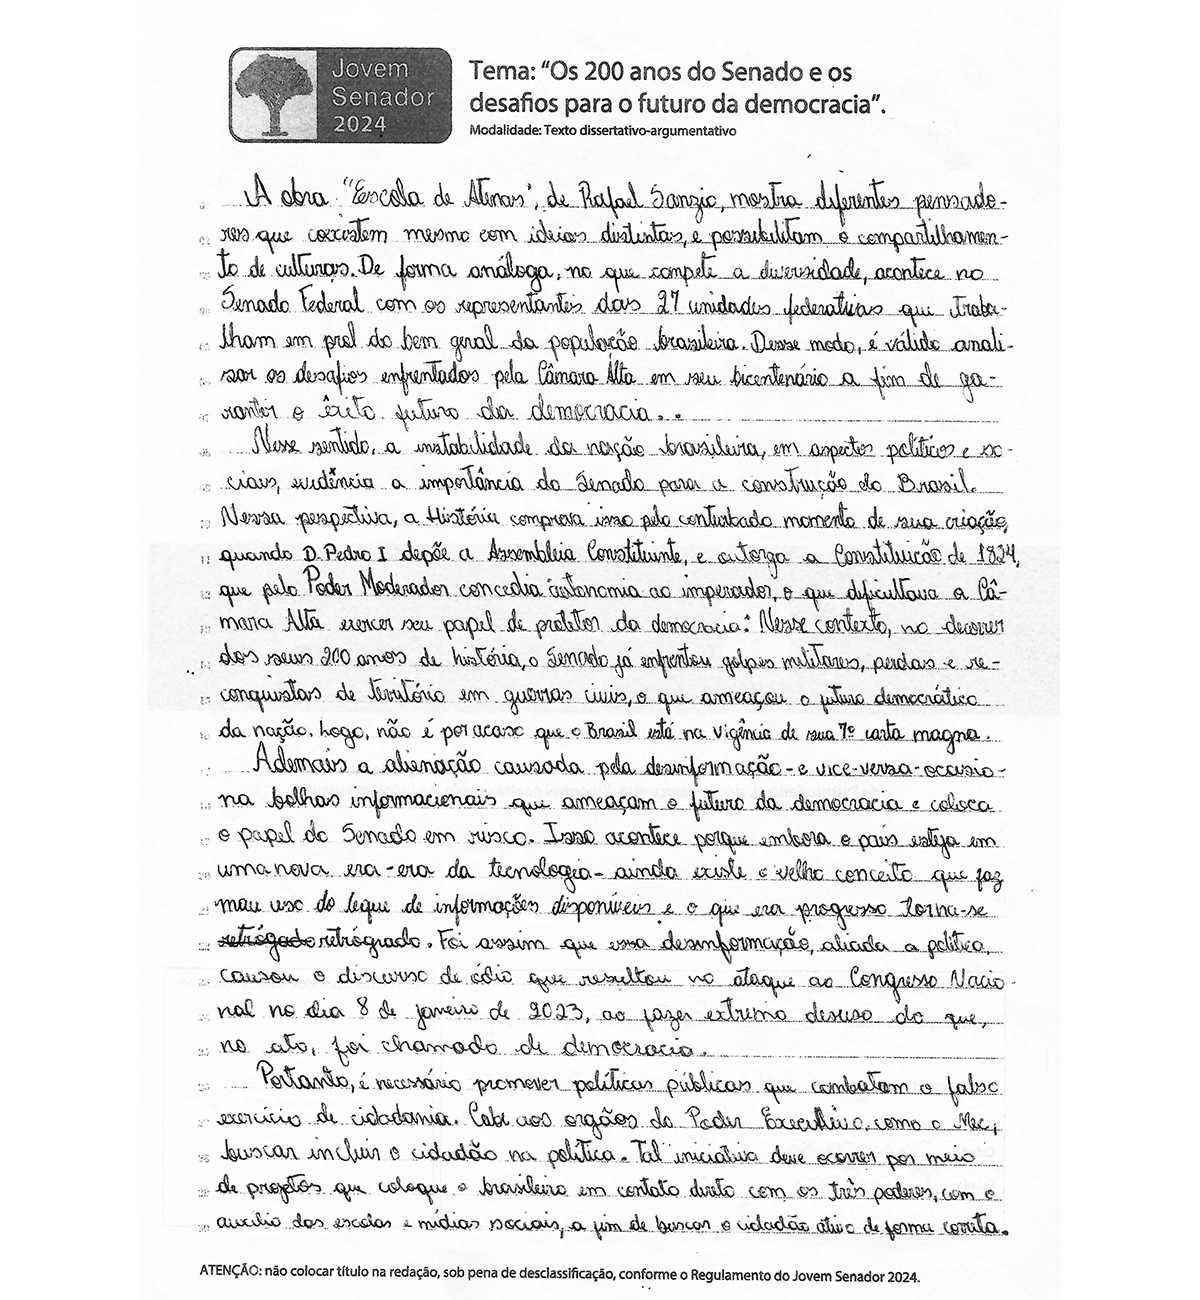 Jovem
Senador
2024
Tema: “Os 200 anos do Senado e os
desafios para o futuro da democracia”.
Modalidade: Texto dissertativo-argumentativo
A obra "Escola de Atenas", de Rafael Sanzio, mostra diferentes pensado-
res que coexistem mesmo com ideias distintas, e possibilitam o compartilhamen-
to de culturas. De forma análoga, no que compete a diversidade, acontece no
Senado Federal com os representantes das 27 unidades federativas que traba-
lham em prol do bem geral da população brasileira. Desse modo, é válido anali-
sar os desafios enfrentados pela Câmara Alta em seu bicentenário a fim de ga-
rantir o êxito futuro da democracia..
Nesse sentido, a instabilidade da nação brasileira, em aspectos políticos e so-
ciais, evidência a importância do Senado para a construção do Brasil.
Nessa perspectiva, a História comprova isso pelo conturbado momento de sua criação,
quando D. Pedro I depõe a Assembleia Constituinte, e outorga a Constituição de 1824,
que pelo Poder Moderador concedia autonomia ao imperador, o que dificultava a Câ-
mara Alta exercer seu papel de protetor da democracia. Nesse contexto, no decorrer
dos seus 200 anos de história, o Senado já enfrentou golpes militares, perdas e re-
conquistas de território em guerras civis, o que ameaçou o futuro democrático
da nação. Logo, não é por acaso que o Brasil está na vigência de sua 7º carta magna.
Ademais a alienação causada pela desinformação-e vice-versa-ocasio-
na bolhas informacionais que ameaçam o futuro da democracia e coloca
o papel do Senado em risco. Isso acontece porque embora o país esteja em
uma nova era -era da tecnologia- ainda existe o velho conceito que faz
mau uso do leque de informações disponíveis e o que era progresso torna-se
retrógado retrógrado. Foi assim que essa desinformação, aliada a política,
causou o discurso de ódio que resultou no ataque ao Congresso Nacio-
nal no dia 8 de janeiro de 2023, ao fazer extremo desuso do que,
no ato, foi chamado de democracia.
Portanto, é necessário promover políticas públicas que combatam o falso
exercício de cidadania. Cabe aos orgãos do Poder Executivo, como o Mec,
buscar incluir o cidadão na política. Tal iniciativa deve ocorrer por meio
de projetos que coloque o brasileiro em contato direto com os três poderes, com o
auxílio das escolas e mídias sociais, a fim de buscar o cidadão ativo de forma correta.
ATENÇÃO: não colocar título na redação, sob pena de desclassificação, conforme o Regulamento do Jovem Senador 2024.